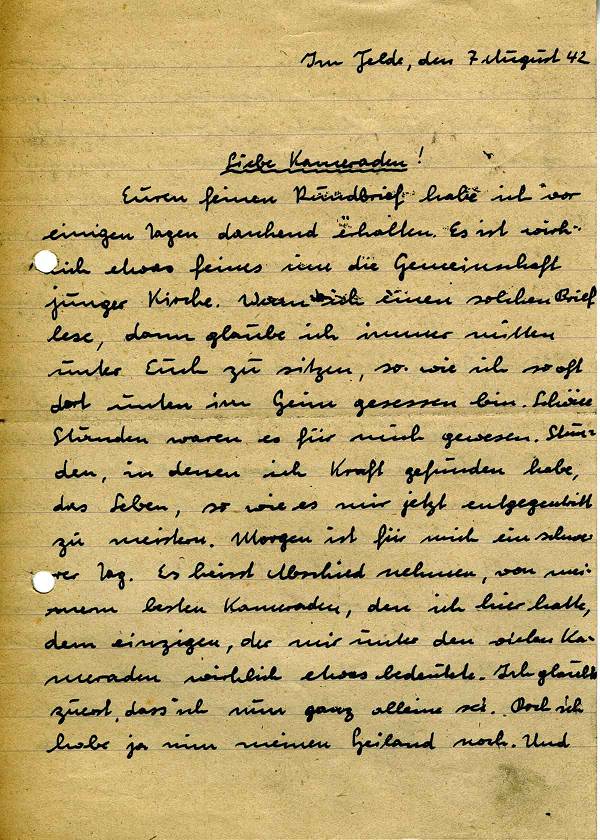 Im Felde, den 7 August 42
Liebe Kameraden!
Euren feinen Rundbrief habe ich vor
einigen Tagen dankend erhalten. Es ist wirk-
lich etwas feines um die Gemeinschaft
junger Kirche. Wenn ich einen solchen Brief
lese, dann glaube ich immer mitten
unter Euch zu sitzen, so wie ich so oft
dort unten im Heim gesessen bin. Schöne
Stunden waren es für mich gewesen. Stun-
den, in denen ich Kraft gefunden habe,
das Leben, so wie es mir jetzt entgegentritt
zu meistern. Morgen ist für mich ein schwe-
rer Tag. Es heisst Abschied nehmen, von mei-
nem besten Kameraden, den ich hier hatte,
dem einzigen, der mir unter den vielen Ka-
meraden wirklich etwas bedeutete. Ich glaubte
zuerst, dass ich nun ganz alleine sei. Doch ich
habe ja nun meinen Heiland noch. Und